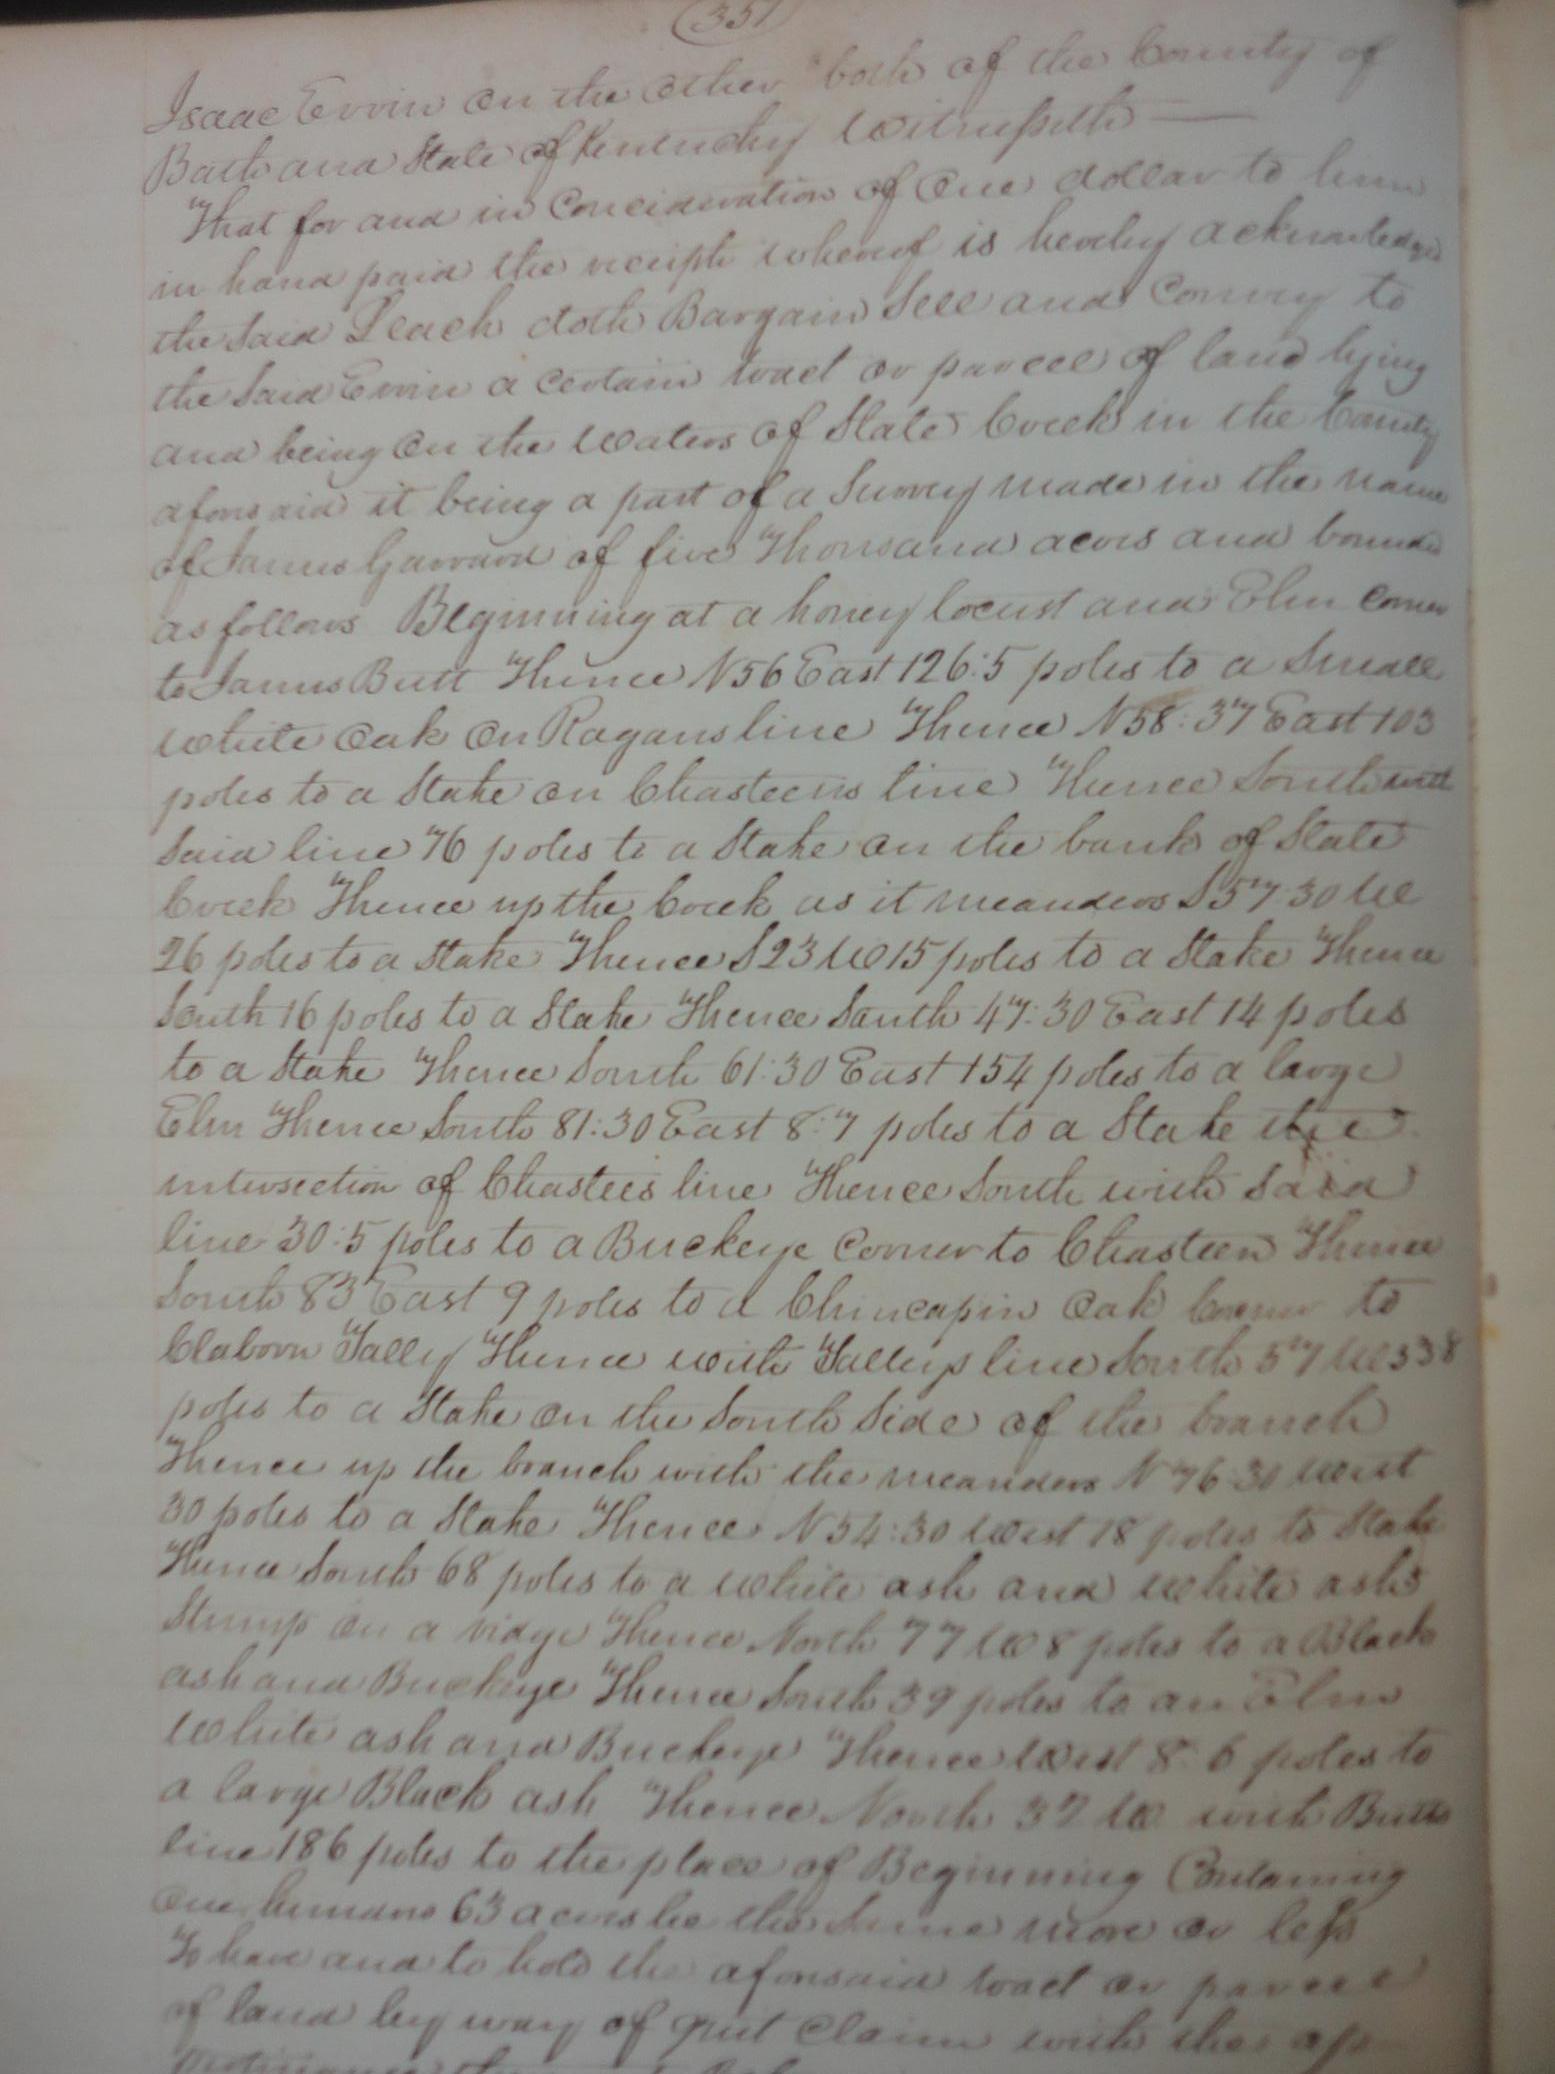 351
Isaac Ervin on the other both of the County of
Bath and State of Kentucky Witnesseth
That for and in Concideration of One dollar to him
in hand paid the receipt whereof is hereby acknowledged
the Said Leach doth Bargain Sell and Convey to
the Said Ervin a certain tract or parcel of land lying
and being on the waters of Slate Creek in the County
aforesaid it being a part of a Survey made in the name
of James Garrard of five Thousand acors and bounded
as follows Beginning at a honey locust and Elm Corner
to James Butt Thence N56 East 126:5 poles to a Small
White Oak on Ragans line Thence N58:37 East 103
poles to a Stake on Chasteens line Thence South with
Said line 76 poles to a Stake on the bank of Slate
Creek Thence up the Creek as it meanders S57:30 W
26 poles to a Stake Thence S23 W 15 poles to a Stake Thence
South 16 poles to a Stake Thence South 47:30 East 14 poles
to a Stake Thence South 61:30 East 154 poles to a large
Elm Thence South 81:30 East 8:7 poles to a Stake the
intersection of Chastees line Thence South with Said
line 30:5 poles to a Buckeye Corner to Chasteen Thence
South 83 East 9 poles to a Chincapin Oak Corner to
Claborn Tally Thence with Talleys line South 57 W 338
poles to a Stake on the South Side of the branch
Thence up the branch with the meanders N 76 30 West
30 poles to a Stake Thence N54:30 West 18 poles to Stake
Thence South 68 poles to a White ash and White ash
Stump on a ridge Thence North 77 W 8 poles to a Black
ash and Buckeye Thence South 39 poles to an Elm
White ash and Buckeye Thence West 8:6 poles to
a large Black ash Thence North 32 W with Butts
line 186 poles to the place of Beginning Containing
One hundred 63 acors be the Same more or less
To have and to hold the aforesaid tract or parcel
of land by way of quit Claim with the ap